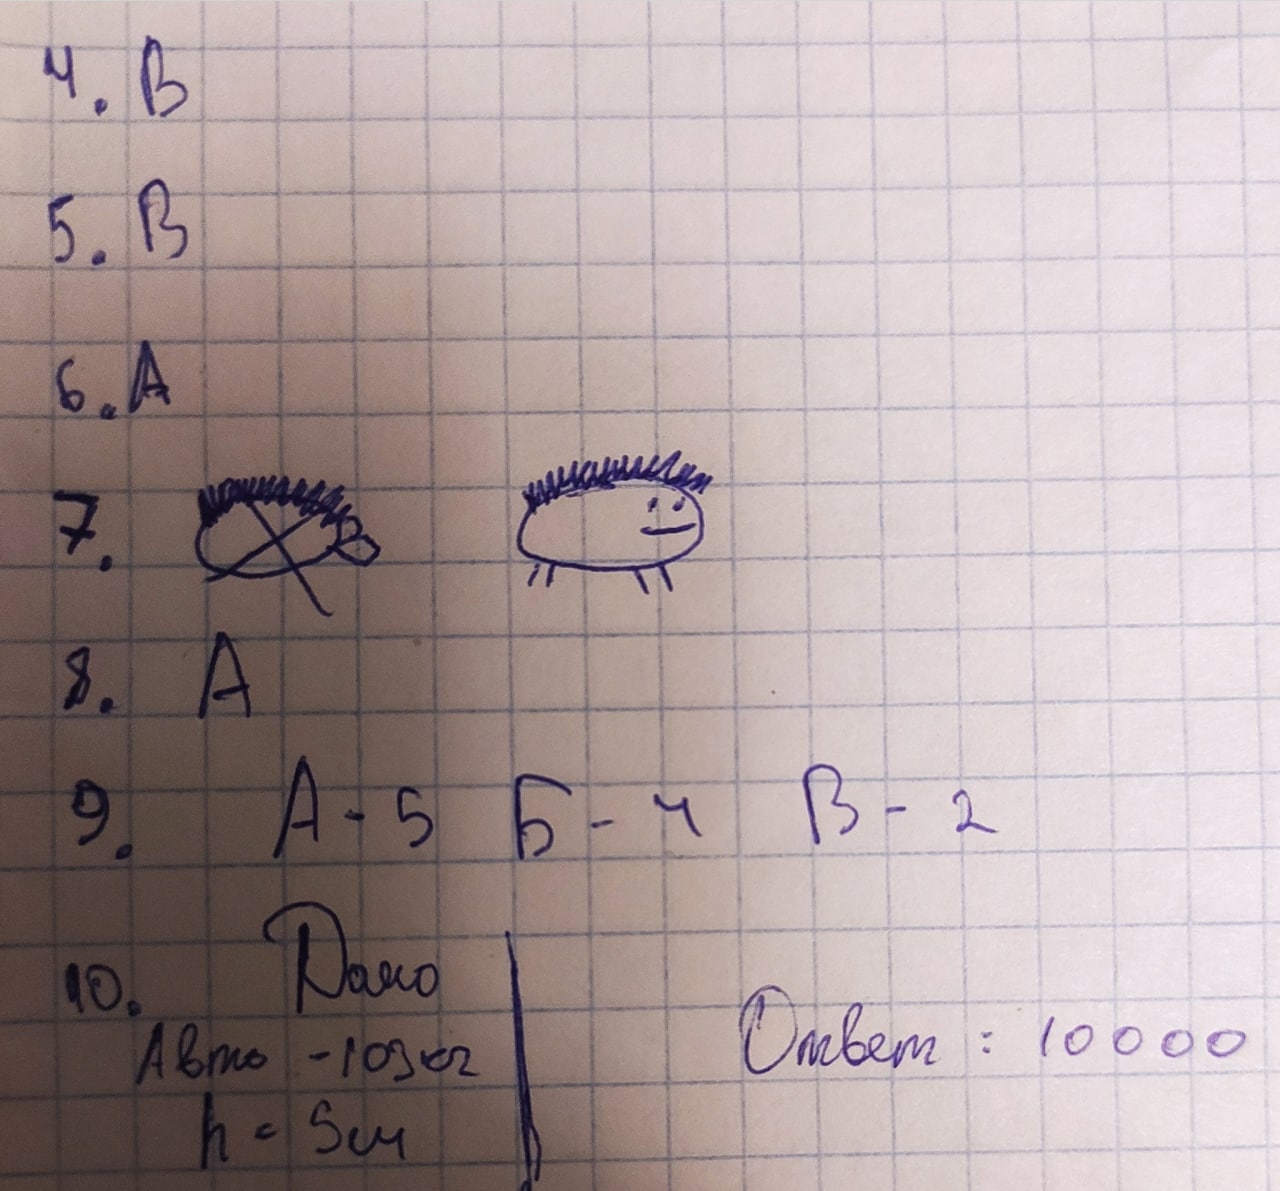 4. В
5. В
6. А
7.
8. А
9. А - 5 Б - 4 В - 2
10. Дано
Авто - 103кг
h = 5см
Ответ : 10000